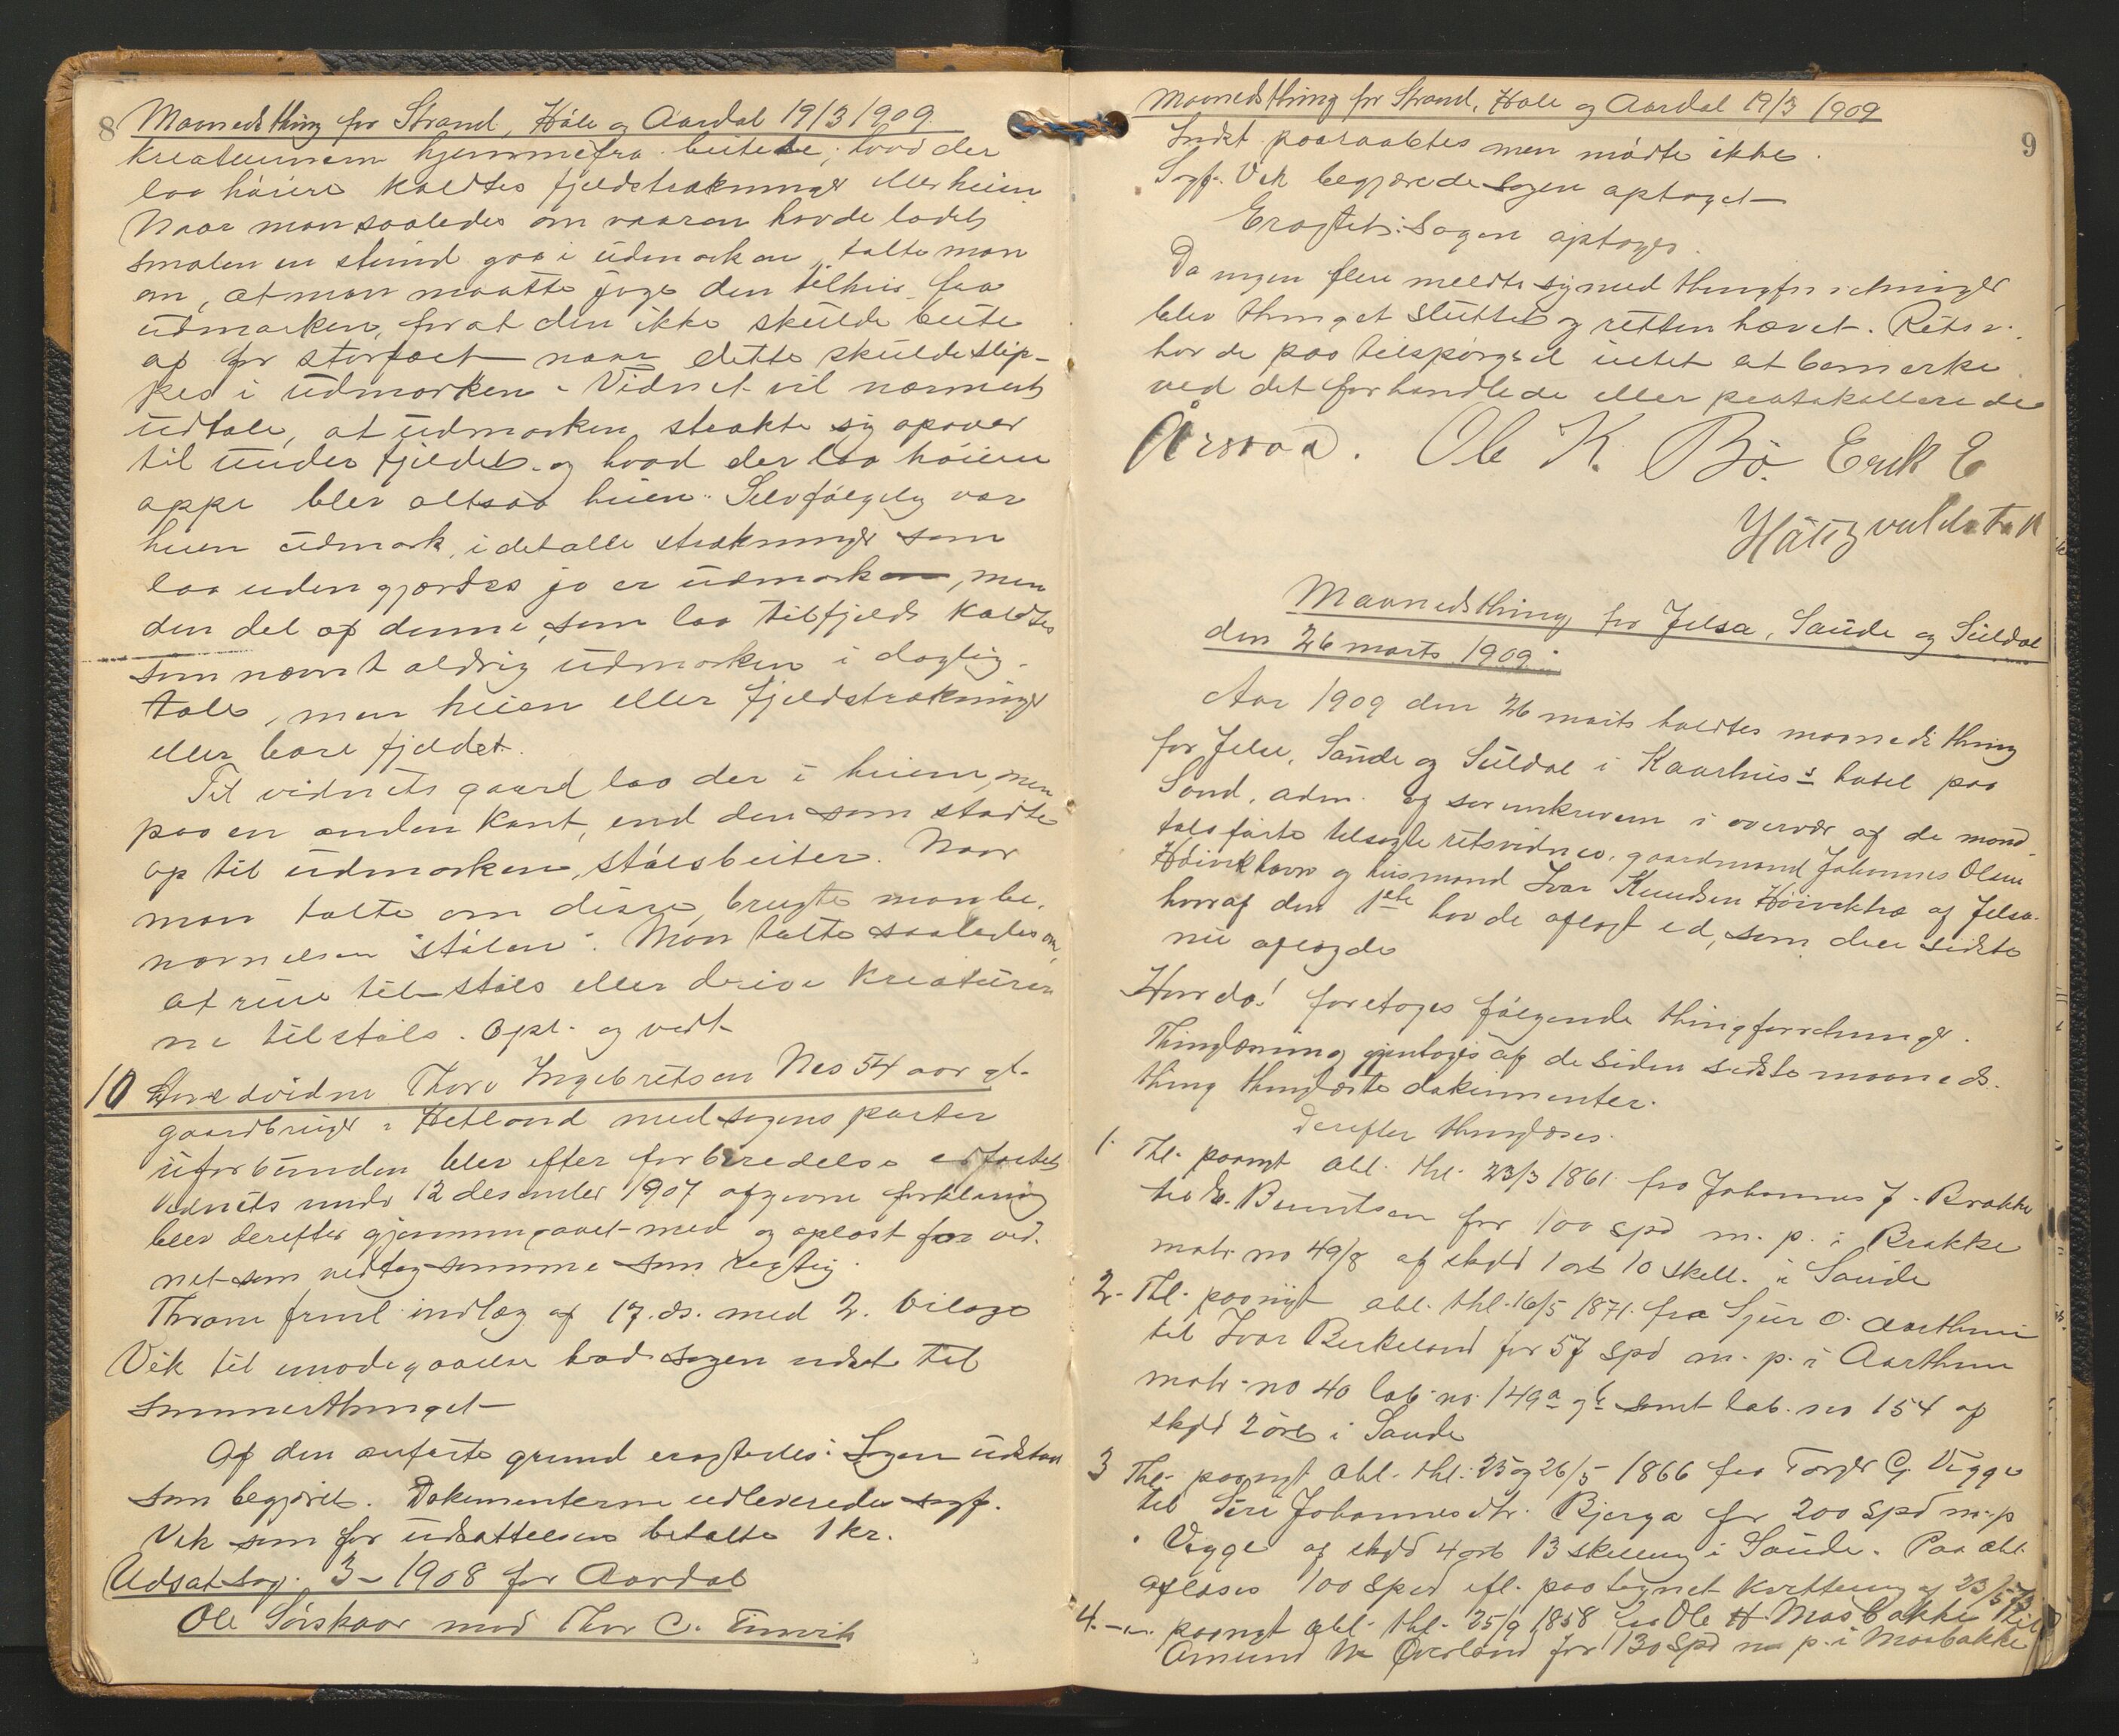 8
Maanedsthing for Strand, Høle og Aardal 19/3 1909.
kreaturnem hjemmefra beitede; hvad der
laa høiere kaldtes fjeldstrækninger eller heien
Naar man saaledes om vaaren havde ladet
smalen en stund gaa i udmarken, talte man
om, at man maatte jage den tilheis fra
udmarken, for at den ikke skulde beite
af for storfæet naar dette skulde slip-
pes i udmarken. Vidnet vil nærmest
udtale, at udmarken strakte sig opover
til under fjeldet og hvad der laa høiere
oppe blev altsaa heien. Selvfølgelig var
heien udmark, idet alle strækninger som
laa uden gjærdes jo er udmarken, men
den del af denne, som laa tilfjelds kaldtes
som nævnt aldrig udmarken i daglig-
tale, men heien eller fjeldstrækninger
eller bare fjeldet.
Til vidnets gaard laa der i heien, men
paa en anden kant, end den som stødte
op til udmarken, stølsbeiter. Naar
man talte om disse, brugte man be-
nævnelsen "stølen". Man talte saaledes om,
at reise tilstøls eller drive kreaturer
ne tilstøls. Opl. og vedt.
10 Hovedvidne Thore Ingebretsen Nes 54 aar gl.
gaardbruger i Hetland med sagens parter
uforbunden blev efter forberedelse edfæstet
Vidnets under 12 desember 1907 afgivne forklaring
blev derefter gjennemgaaet med og oplæst for vid-
net som vedtog samme som rigtig.
Thrane freml. indlæg af 17. ds. med 2 bilage
Vik til imødegaaelse bad sagen udsat til
sommerthinget
Af den anførte grund eragtedes: Sagen udstaar
som begjæret. Dokumenterne udleveredes sagf.
Vik som for udsættelsen betalte 1 kr.
Udsat sag. 3-1908 for Aardal
Ole Sørskaar mod Thor C. Tinvik
9
Maanedsthing for Strand, Høle og Aardal 19/3 1909
Indst. paaraabtes men mødte ikke.
Sagf. Vik begjærede sagen optaget
Eragtet: Sagen optages.
Da ingen flere meldte sig med thingforretninger
blev thinget sluttet og retten hævet. Retsv.
havde paa tilspørgsel intet at bemærke
ved det forhandlede eller protokollerede
Årsvoll. Ole K. Bø. Erik E
Håtzvaldstøk
Maanedsthing for Jelsa, Saude og Suldal
den 26 marts 1909.
Aar 1909 den 26 marts holdtes maanedsthing
for Jelse, Saude og Suldal i Kaarhus's hotel paa
Sand, adm. af sorenskriveren i overvær af de mand-
talsførte tilsagte retsvidner, gaardmand Johannes Olsen
Høivikhavn og husmand Ivar Knudsen Høivikhavn af Jelse.
hvoraf den 1ste havde aflagt ed, som den sidste
nu aflagde
Hvorda! foretoges følgende thingforretninger.
Thinglæsning gjentoges af de siden sidste maaneds-
thing thinglæste dokumenter.
Derefter thinglæses.
1. Thl. paanyt obl. thl. 23/3 1861 fra Johannes J. Brakke
til E. Berntsen for 100 spd m. p. i Brakke
matr. no 49/8 af skyld 1 ort 10 skill. i Saude
2. Thl. paanyt obl. thl. 16/5 1871. fra Sjur O. Aarthun
til Ivar Birkeland for 57 spd m. p. i Aarthun
matr. no 40 løb. no 149a og b samt løb. no 154 af
skyld 2 ører i Saude
3 Thl. paanyt obl. thl. 25 og 26/5 1866 fra Torger G. Vigge
til Siri Johannesdtr. Bjerga for 200 spd m. p
i Vigge af skyld 4 ort 13 skilling i Saude. Paa obl.
aflæses 100 Spd ifl. paategnet kvittering af 23/5 73
4. -"- paanyt obl. thl. 25/9 1858 fra Ole H Mosbakke til
Amund M Overland for 130 Spd m p. i Mosbakke